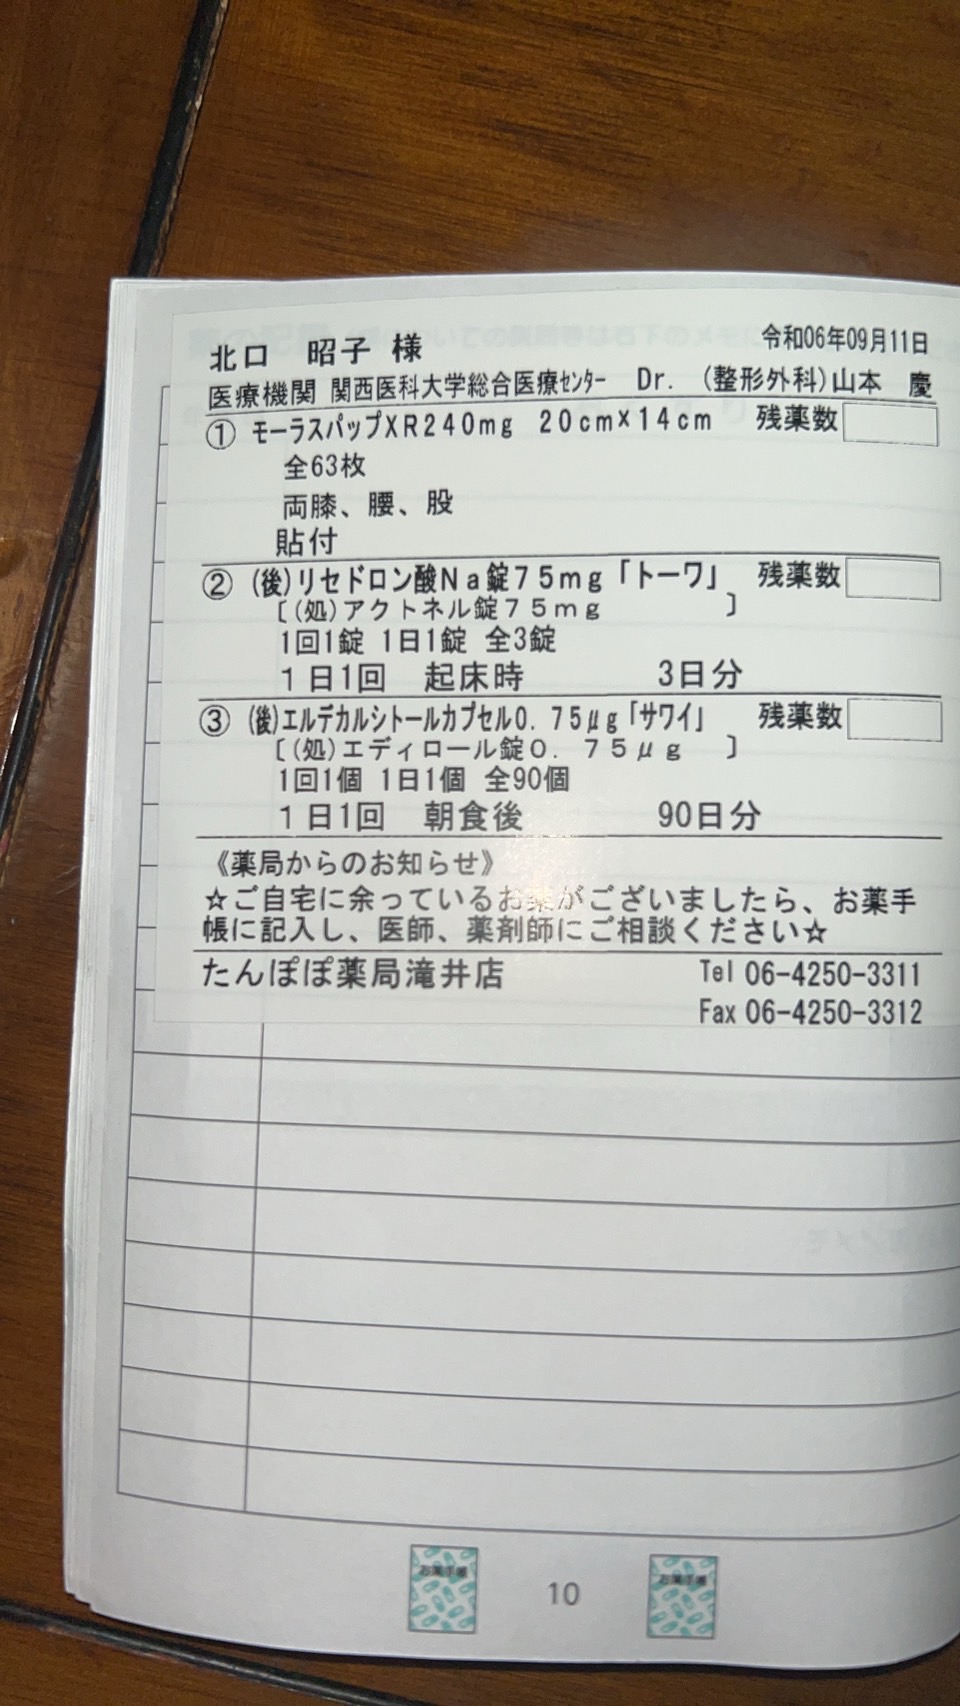 北口 昭子 様
令和06年09月11日
医療機関 関西医科大学総合医療ｾﾝﾀｰ Dr. (整形外科)山本 慶
① モーラスパップXR240mg 20cm×14cm 残薬数
全63枚
両膝、腰、股
貼付
② (後)リセドロン酸Na錠75mg「トーワ」 残薬数
[(処)アクトネル錠75mg ]
1回1錠 1日1錠 全3錠
1日1回 起床時 3日分
③ (後)エルデカルシトールカプセル0.75μg「サワイ」 残薬数
[(処)エディロール錠0.75μg ]
1回1個 1日1個 全90個
1日1回 朝食後 90日分
《薬局からのお知らせ》
☆ご自宅に余っているお薬がございましたら、お薬手
帳に記入し、医師、薬剤師にご相談ください☆
たんぽぽ薬局滝井店 Tel 06-4250-3311
Fax 06-4250-3312
お薬手帳 10 お薬手帳